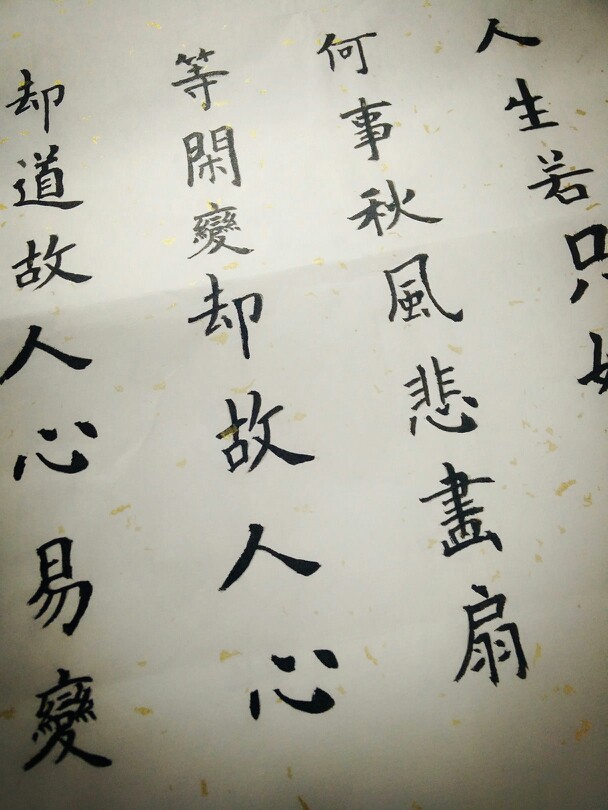 人生若只
何事秋風悲畫扇
等閑變却故人心
却道故人心易變